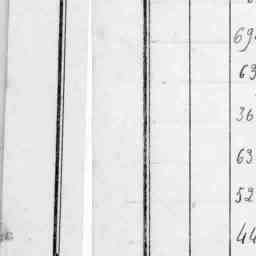 69
63
36
63
52
44